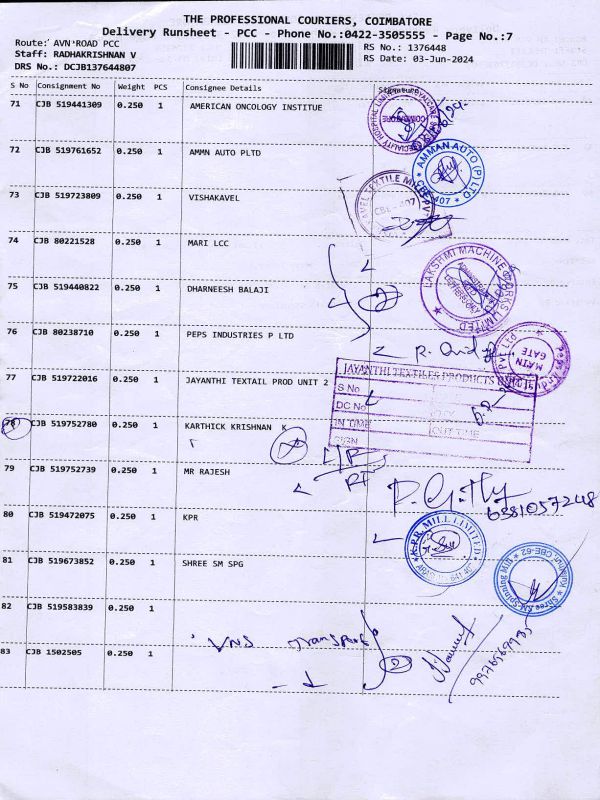 THE PROFESSIONAL COURIERS, COIMBATORE
Delivery Runsheet - PCC - Phone No.:0422-3505555 - Page No.:7
Route: AVN ROAD PCC
RS No.: 1376448
Staff: RADHAKRISHNAN V
RS Date: 03-Jun-2024
DRS No.: DCJB137644807
S No Consignment No Weight PCS Consignee Details Signature
71 CJB 519441309 0.250 1 AMERICAN ONCOLOGY INSTITUE
COIMBATORE
72 CJB 519761652 0.250 1 AMMN AUTO PLTD
AMMAN AUTO (P) LTD
CBE-407
73 CJB 519723809 0.250 1 VISHAKAVEL
74 CJB 80221528 0.250 1 MARI LCC
LAKSHMI MACHINE WORKS LIMITED
75 CJB 519440822 0.250 1 DHARNEESH BALAJI
2
76 CJB 80238710 0.250 1 PEPS INDUSTRIES P LTD
MAIN
GATE
77 CJB 519722016 0.250 1 JAYANTHI TEXTAIL PROD UNIT 2
JAYANTHI TEXTILES PRODUCTS UNIT
S No
DC No
IN TIME OUT TIME
SIGN
78 CJB 519752780 0.250 1 KARTHICK KRISHNAN K
79 CJB 519752739 0.250 1 MR RAJESH
6381057248
80 CJB 519472075 0.250 1 KPR
K.P.R. MILL LIMITED
81 CJB 519673852 0.250 1 SHREE SM SPG
82 CJB 519583839 0.250 1
VNS Transport
2
83 CJB 1502505 0.250 1